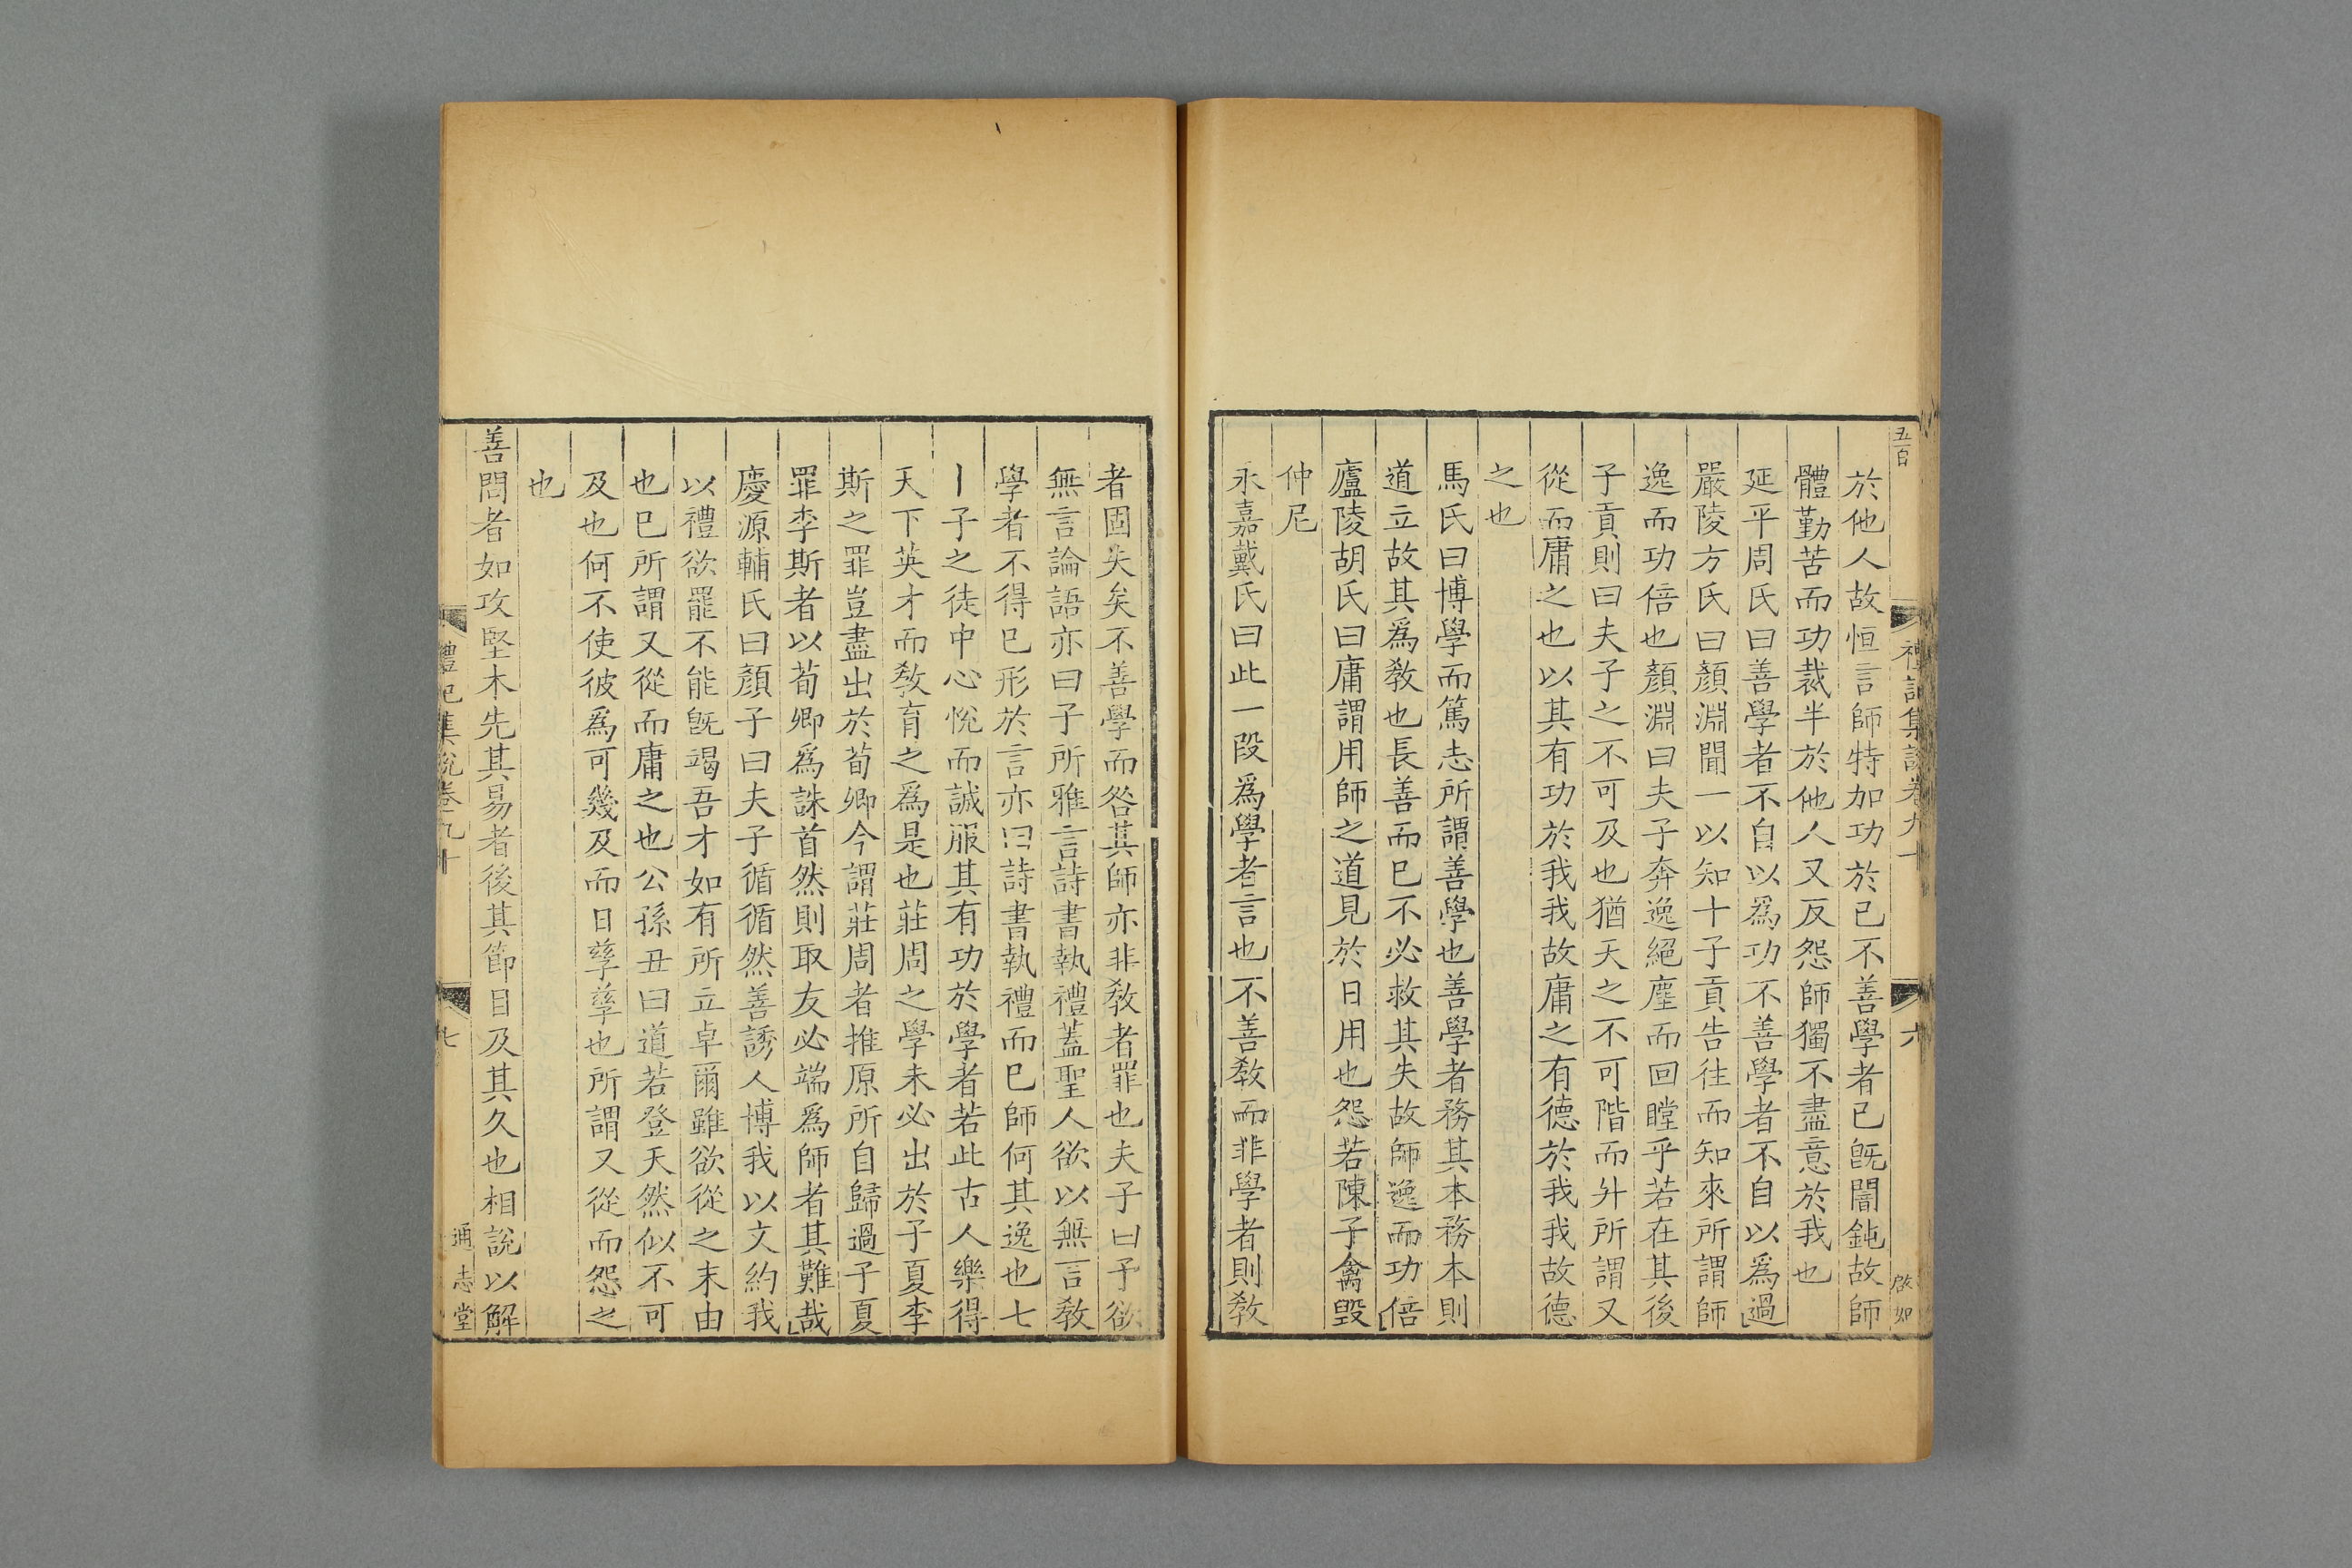 五百
禮記集說卷九十
六
啟如
於他人故恒言師特加功於已不善學者已旣闇鈍故師
體勤苦而功裁半於他人又反怨師獨不盡意於我也
延平周氏曰善學者不自以爲功不善學者不自以爲過
嚴陵方氏曰顏淵聞一以知十子貢告往而知來所謂師
逸而功倍也顏淵曰夫子奔逸絕塵而回瞠乎若在其後
子貢則曰夫子之不可及也猶天之不可階而升所謂又
從而庸之也以其有功於我我故庸之有德於我我故德
之也
馬氏曰博學而篤志所謂善學也善學者務其本務本則
道立故其爲敎也長善而已不必救其失故師逸而功倍
廬陵胡氏曰庸謂用師之道見於日用也怨若陳子禽毀
仲尼
永嘉戴氏曰此一段爲學者言也不善敎而非學者則敎
者固失矣不善學而咎其師亦非敎者罪也夫子曰予欲
無言論語亦曰子所雅言詩書執禮蓋聖人欲以無言敎
學者不得已形於言亦曰詩書執禮而已師何其逸也七
丨子之徒中心悅而誠服其有功於學者若此古人樂得
天下英才而敎育之爲是也莊周之學未必出於子夏李
斯之罪豈盡出於荀卿今謂莊周者推原所自歸過子夏
罪李斯者以荀卿爲誅首然則取友必端爲師者其難哉
慶源輔氏曰顏子曰夫子循循然善誘人博我以文約我
以禮欲罷不能旣竭吾才如有所立卓爾雖欲從之末由
也已所謂又從而庸之也公孫丑曰道若登天然似不可
及也何不使彼爲可幾及而日孳孳也所謂又從而怨之
也
善問者如攻堅木先其易者後其節目及其久也相說以解
禮記集說卷九十
七
通志堂